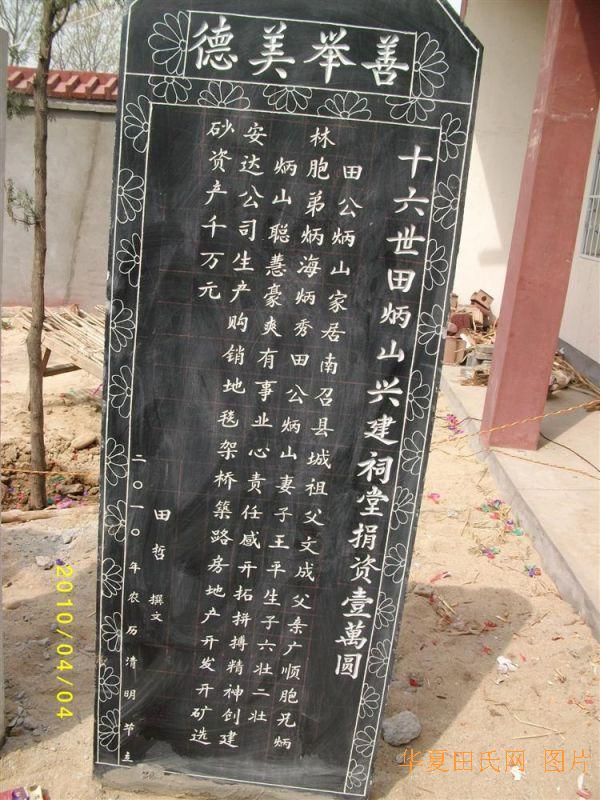 善举美德
十六世田炳山兴建祠堂捐资壹萬圆
田公炳山家居南召县城祖父文成父亲广顺胞兄炳
林胞弟炳海炳秀田公炳山妻子王平生子六壮二壮
炳山聪慧豪爽有事业心责任感开拓拼搏精神创建
安达公司生产购销地毯架桥築路房地产开发开矿选
砂资产千万元
田哲 撰文
二〇一〇年农历清明节立
2010/04/04
华夏田氏网 图片